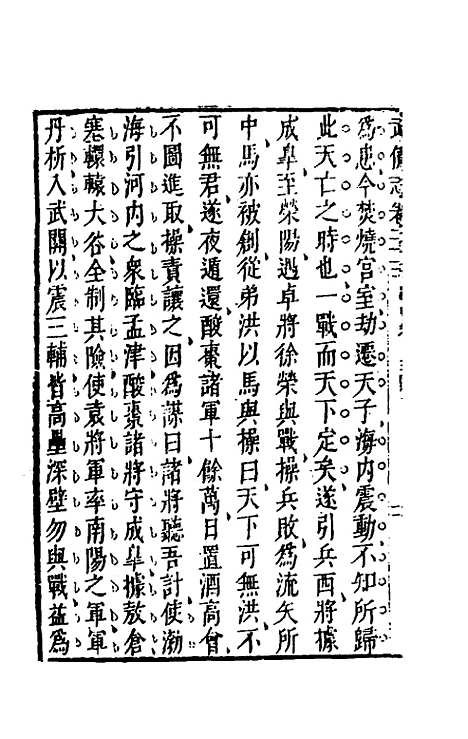 武備志卷二十二
爲患今焚燒宮室劫遷天子海內震動不知所歸
此天亡之時也一戰而天下定矣遂引兵西將據
成臯至滎陽遇卓將徐榮與戰操兵敗爲流矢所
中馬亦被創從弟洪以馬與操曰天下可無洪不
可無君遂夜遁還酸棗諸軍十餘萬日置酒高會
不圖進取操責讓之因爲謀曰諸將聽吾計使渤
海引河內之衆臨孟津酸棗諸將守成臯據敖倉
塞轘轅大谷全制其險使袁將軍率南陽之軍軍
丹析入武關以震三輔皆高壘深壁勿與戰益爲